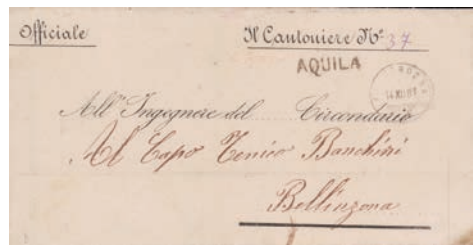 Officiale Il Cantoniere No. 37
AQUILA
14 XII
All'Ingegnere del Circondario
Al Capo Tenico Banchini
Bellinzona